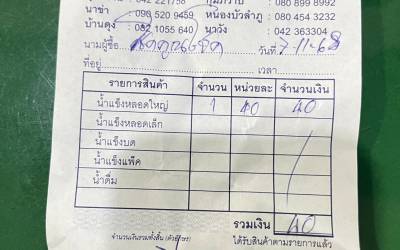 042 221758 กุมภวาปี 080 899 8992
นาข่า 090 520 9459 หนองบัวลำภู 080 454 3232
บ้านดุง 082 1055 640 นาวัง 042 363304
นามผู้ซื้อ วันที่ 7-11-68
ที่อยู่ เวลา
รายการสินค้า จำนวน หน่วยละ จำนวนเงิน
น้ำแข็งหลอดใหญ่ 1 40 40
น้ำแข็งหลอดเล็ก
น้ำแข็งบด
น้ำแข็งแพ็ค
น้ำดื่ม
รวมเงิน 40
จำนวนเงินรวมทั้งสิ้น (ตัวอักษร) ได้รับสินค้าตามรายการแล้ว